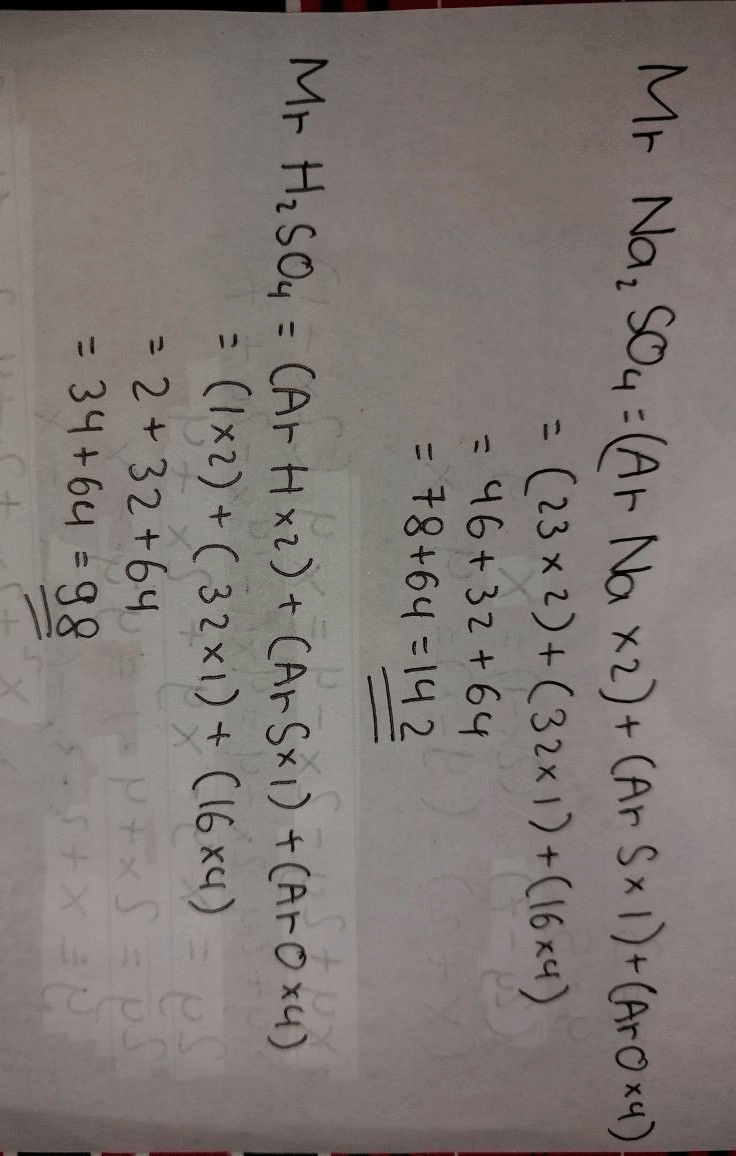 Mr Na₂SO₄ = (Ar Na x2) + (Ar S x 1) + (Ar O x4)
= (23 x 2) + (32 x 1) + (16 x4)
= 46 + 32 + 64
= 78 + 64 = 142
Mr H₂SO₄ = (Ar H x2) + (Ar S x1) + (Ar O x4)
= (1x2) + (32 x1) + (16 x4)
= 2 + 32 + 64
= 34 + 64 = 98